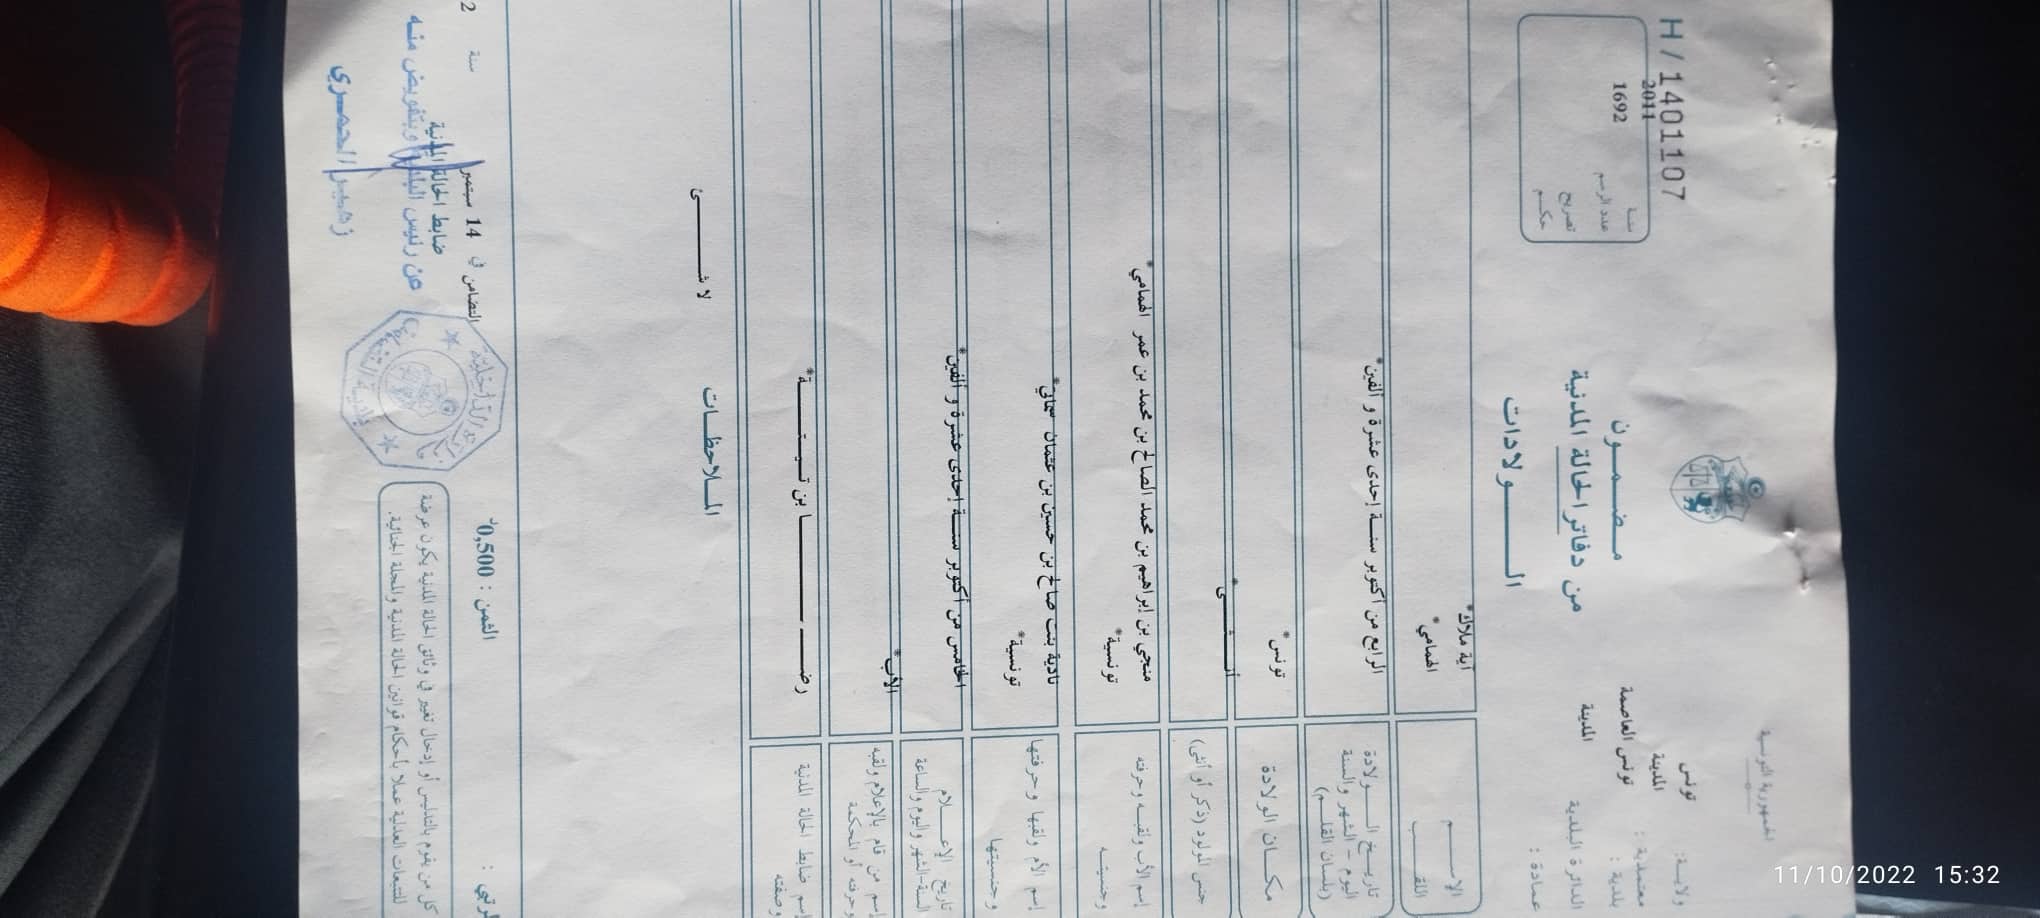 الجمهورية التونسية
ولاية: تونس
معتمدية: المدينة
بلدية: تونس العاصمة
الدائرة البلدية المدينة
عمادة:
مـضـمـون
من دفاتر الحالة المدنية
الـولادات
H/1401107
سنة 2011
عدد الرسم 1692
تصريح
حكم
الإسـم
اللقـب
آية ملاك*
الهمامي*
تاريـخ الـولادة
اليوم - الشهر والسنة
(بلسان القلـم)
الرابع من أكتوبر سنـة إحدى عشرة و ألفين*
مكـان الولادة
تونس*
جنس المولود (ذكر أو أنثى)
أنـثـى*
إسم الأب ولقبـه وحرفته
وجنسيتـه
منجي بن إبراهيم بن محمد الصالح بن محمد بن عمر الهمامي*
تونسية*
إسم الأم ولقبها وحرفتها
وجنسيتها
نادية بنت صالح بن حسين بن عثمان سمالي*
تونسية*
تاريخ الإعـلام
السنة-الشهر واليوم والساعة
الخامس من أكتوبر سنـة إحدى عشرة و ألفين*
إسم من قام بالإعلام ولقبه
وحرفته أو المحكمة
الأب*
إسم ضابط الحالة المدنية
وصفته
رضـا بن تـيـتـة*
المـلاحظـات
لا شـئ
الثمن : 0,500د
التضامن في 14 سبتمبر سنة 2
ضابط الحالة المدنية
عن رئيس البلدية وبتفويض منه
زهير الحمري
كل من يقوم بالتدليس أو إدخال تغيير في وثائق الحالة المدنية يكون عرضة
للتتبعات العدلية عملا بأحكام قوانين الحالة المدنية والمجلة الجنائية.
11/10/2022 15:32